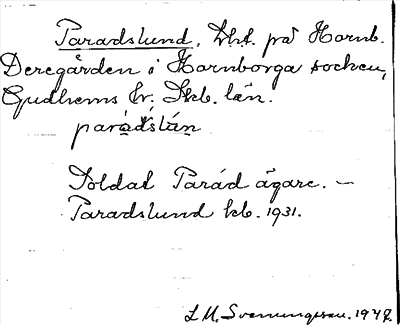 Paradslund, Lht. på Hornb.
Deregården i Hornborga socken,
Gudhems hr. Skb. län.
parádslún
Soldat Parád ägare. –
Paradslund kb. 1931.
L M. Svenungsson. 1942.